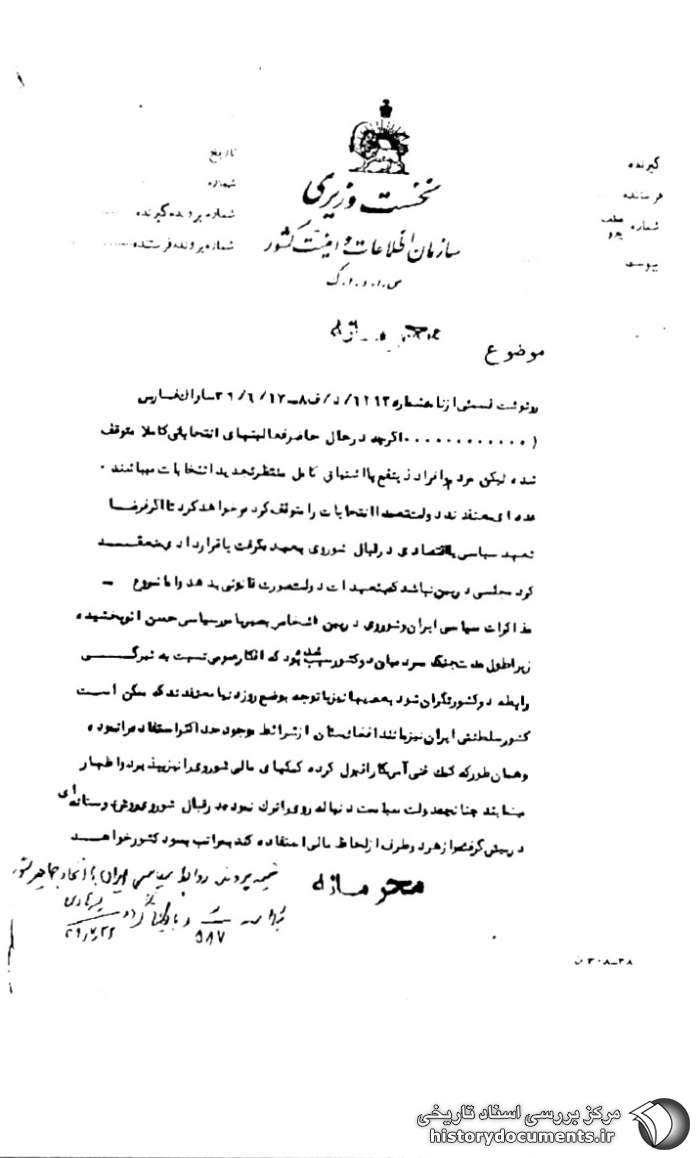 نخست وزیری
سازمان اطلاعات و امنیت کشور
س.ا.و.ا.ک
گیرنده
فرستنده
شماره عطف پیرو
پیوست
تاریخ
شماره
شماره پرونده گیرنده
شماره پرونده فرستنده
محرمانه
موضوع
رونوشت قسمتی از نامه شماره ساواک فارس
( ............ اگرچه در حال حاضر فعالیتهای انتخاباتی کاملا متوقف
شده لیکن مردم و افراد ذینفع با اشتهای کامل منتظر تجدید انتخابات میباشند .
عده ای معتقدند دولت تعمدا انتخابات را متوقف کرده و خواهد کرد تا اگر فرضا
تعهد سیاسی یا اقتصادی در قبال شوروی بعهده گرفت یا قراردادی منعقد
کرد مجلسی در بین نباشد که بتعهدات دولت صورت قانونی بدهد و اما شروع
مذاکرات سیاسی ایران و شوروی در بین اشخاص بصیر بامور سیاسی حسن اثر بخشیده
زیرا طول مدت جنگ سرد میان دو کشور سبب شده بود که افکار عمومی نسبت به تیرگی
رابطه دو کشور نگران شود بعضیها نیز با توجه بوضع روز دنیا معتقدند که ممکن است
کشور سلطنتی ایران نیز مانند افغانستان از شرائط موجود حداکثر استفاده را نموده
و همان طور که کمک فنی آمریکا را قبول کرده کمکهای مالی شوروی را نیز بپذیرد و اظهار
مینمایند چنانچه دولت سیاست دنباله روی را ترک نموده در قبال شوروی روش دوستانه ای
در پیش گرفته و از هر دو طرف از لحاظ مالی استفاده کند بمراتب بسود کشور خواهد
محرمانه
ضمیمه پرونده روابط سیاسی ایران با اتحاد جماهیر شوروی
۵۸۷
۳۰۸-۳۸ ن
مرکز بررسی اسناد تاریخی
historydocuments.ir